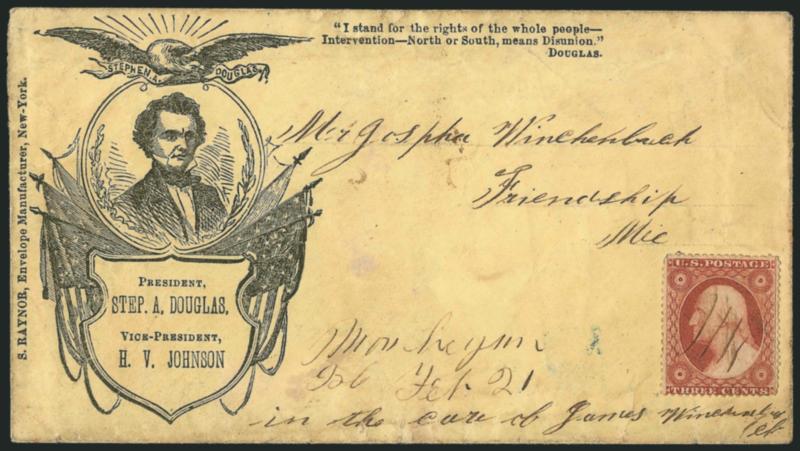 "I stand for the rights of the whole people—
Intervention—North or South, means Disunion."
DOUGLAS.
STEPHEN A. DOUGLAS,
S. RAYNOR, Envelope Manufacturer, New-York.
PRESIDENT,
STEP. A. DOUGLAS,
VICE-PRESIDENT,
H. V. JOHNSON
Gospha Winchenbach
Friendship
Me
U.S. POSTAGE
THREE CENTS
Feb 21
in the care of James Winchenba